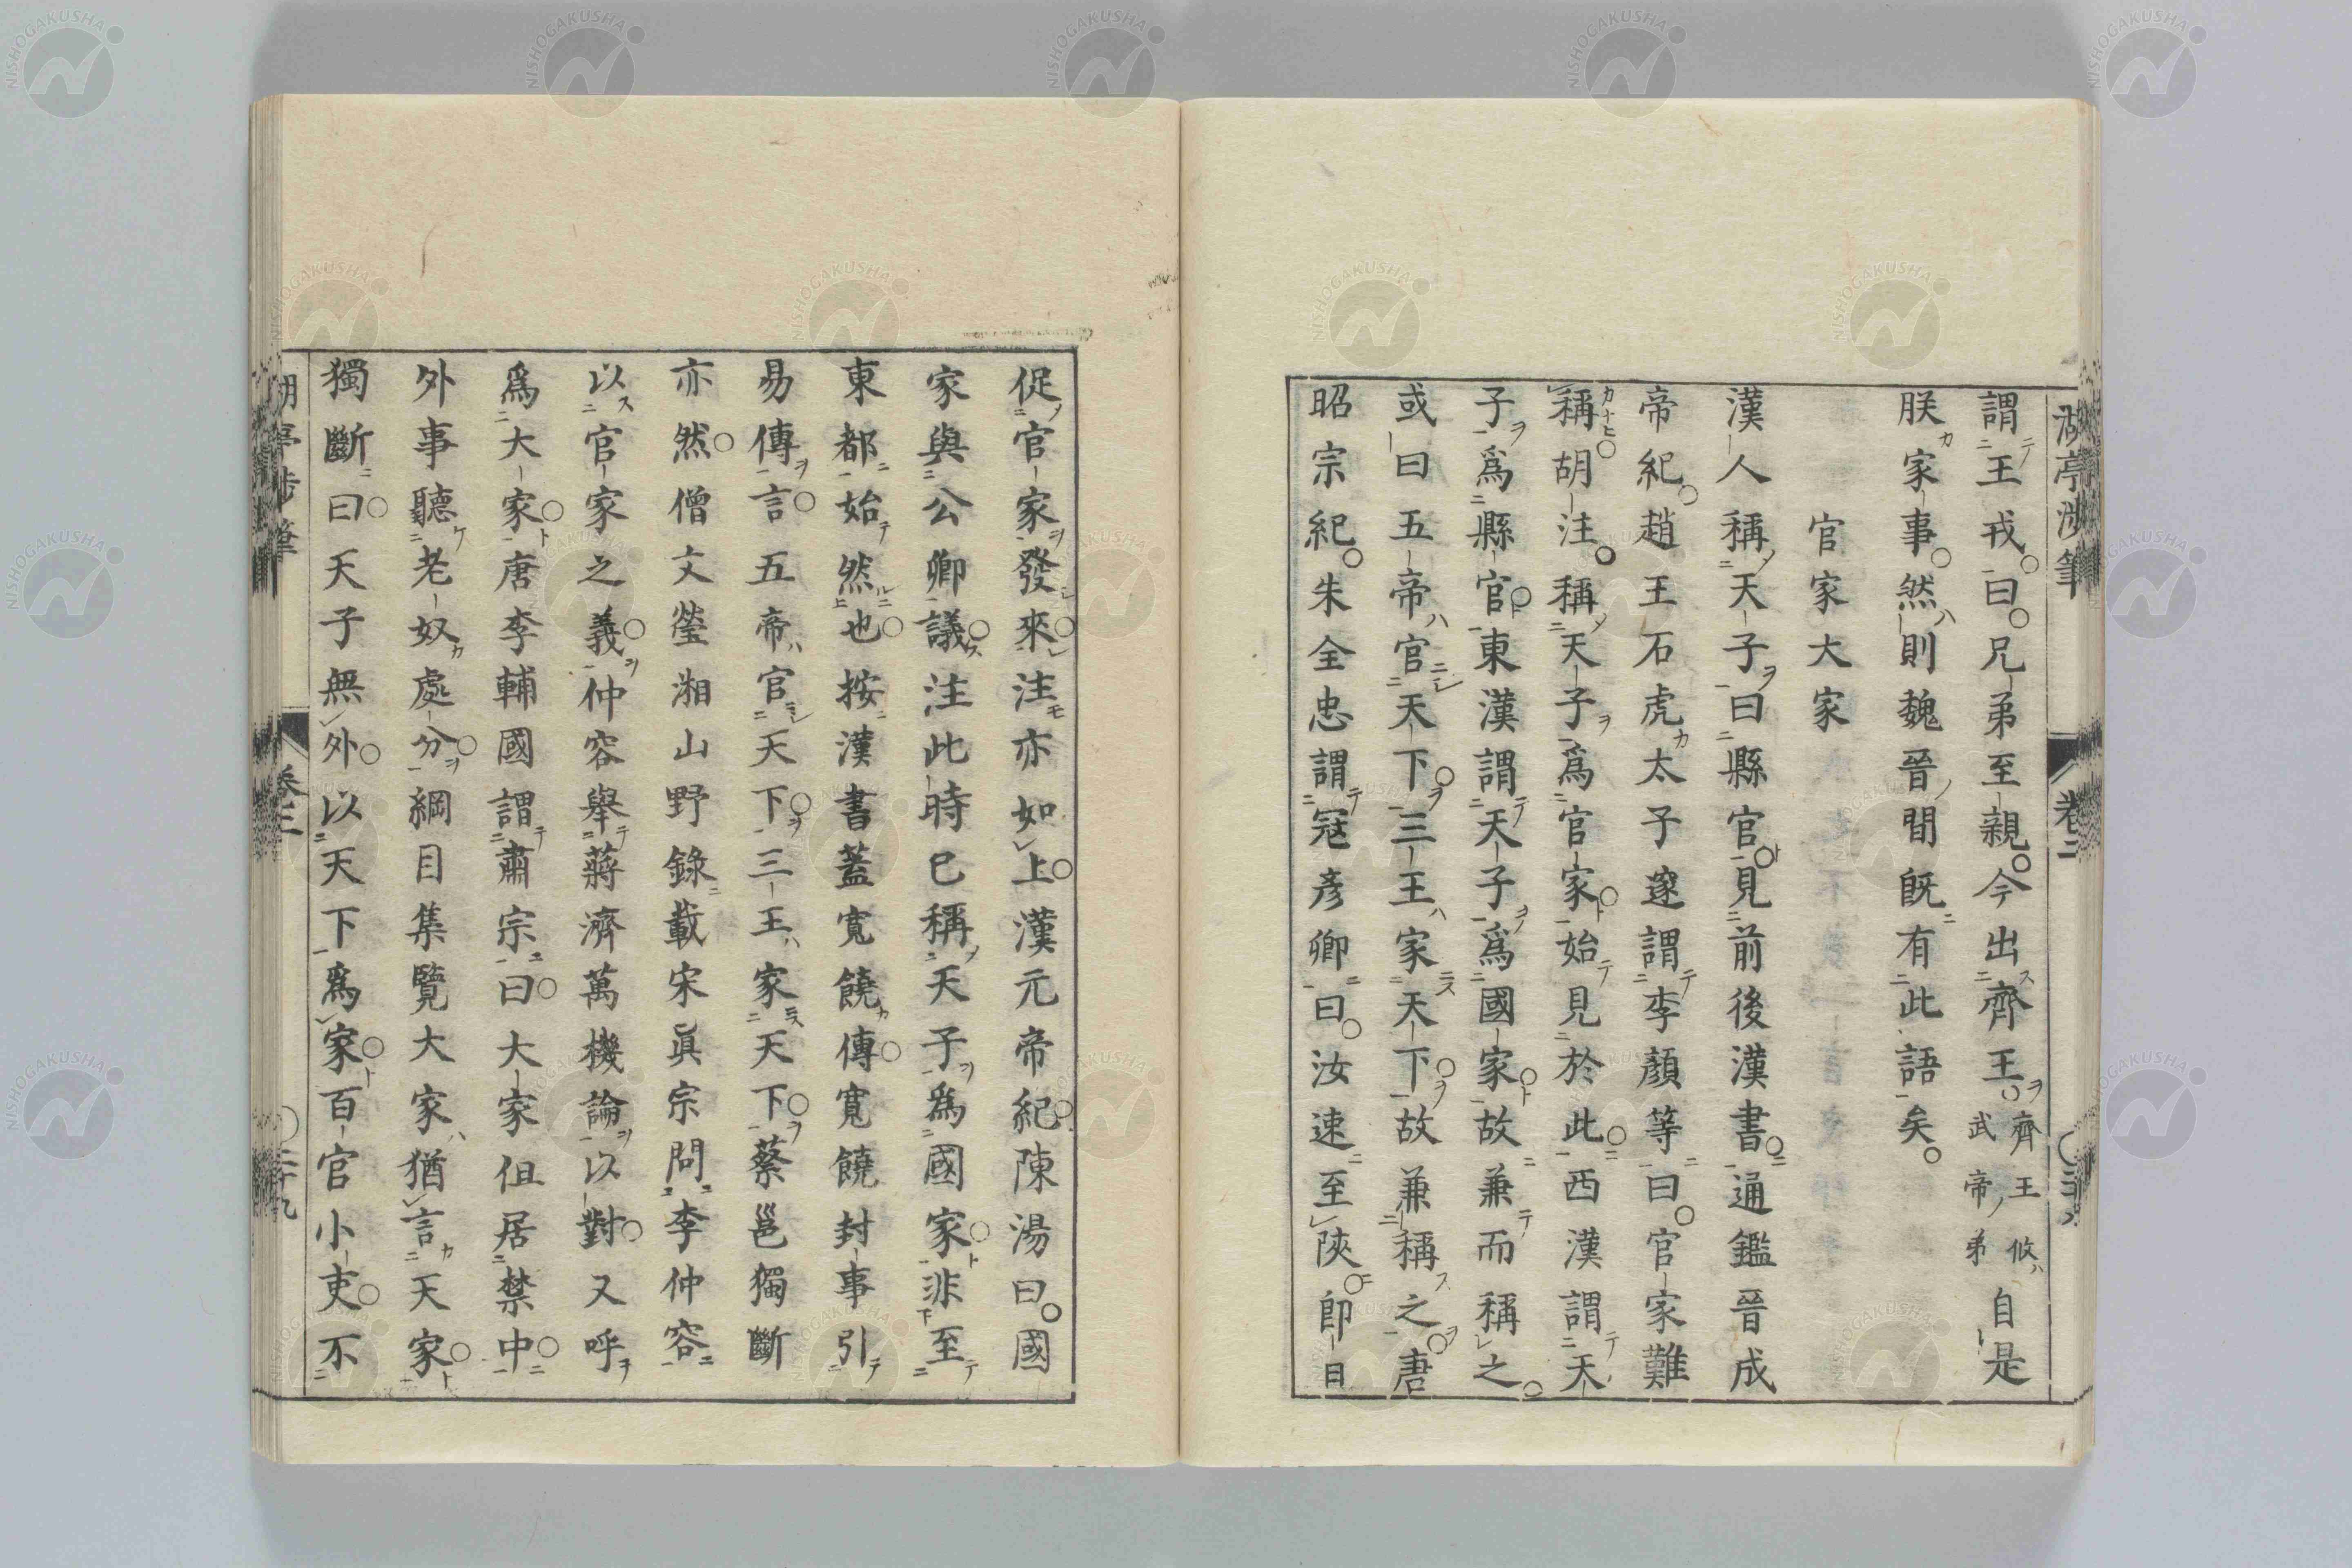 湖亭渉筆 卷二
謂王戎曰兄弟至親今出齊王齊王攸武帝弟自是
朕家事然則魏晉間既有此語矣
官家大家
漢人稱天子曰縣官見前後漢書通鑑晉成
帝紀趙王石虎太子邃謂李顏等曰官家難
稱胡注稱天子爲官家始見於此西漢謂天
子爲縣官東漢謂天子爲國家故兼而稱之
或曰五帝官天下三王家天下故兼稱之唐
昭宗紀朱全忠謂寇彥卿曰汝速至陝即日
促官家發來注亦如上漢元帝紀陳湯曰國
家與公卿議注此時已稱天子爲國家非至
東都始然也按漢書蓋寬饒傳寬饒封事引
易傳言五帝官天下三王家天下蔡邕獨斷
亦然僧文瑩湘山野錄載宋眞宗問李仲容
以官家之義仲容舉蔣濟萬機論以對又呼
爲大家唐李輔國謂肅宗曰大家但居禁中
外事聽老奴處分綱目集覽大家猶言天家
獨斷曰天子無外以天下爲家百官小吏不